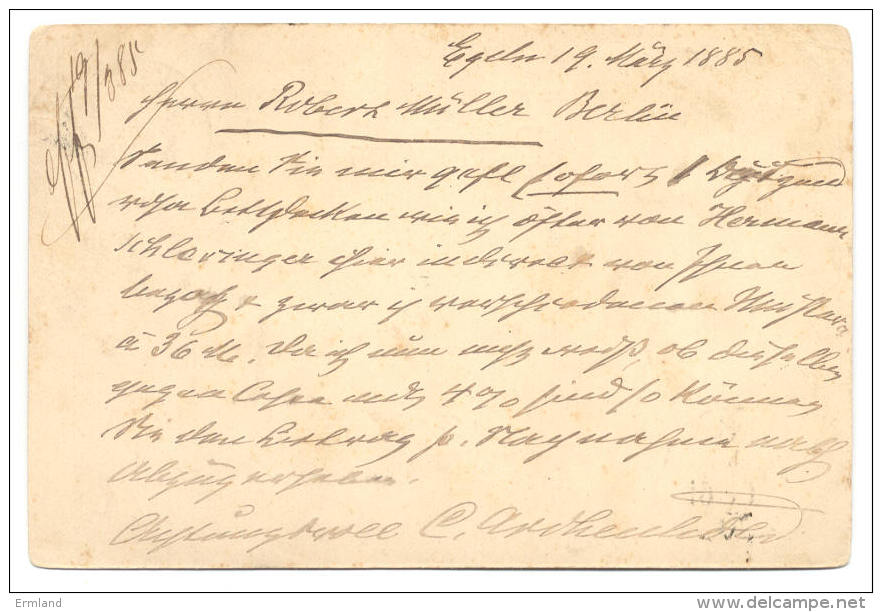 Egeln 19. März 1885
Herrn Robert Müller Berlin
Senden Sie mir gefl sofort 1 Dutzend
rosa Bettdecken wie ich öfter von Hermann
Schlesinger hier indirect von Ihnen
bezog & zwar in verschiedenen Mustern
à 36 M. Da ich nun nicht weiß, ob dieselben
gegen Cassa mit 4% sind so können
Sie den Betrag p. Nachnahme nach
Abzug erheben.
Achtungsvoll C.
Ermland
delcampe.net